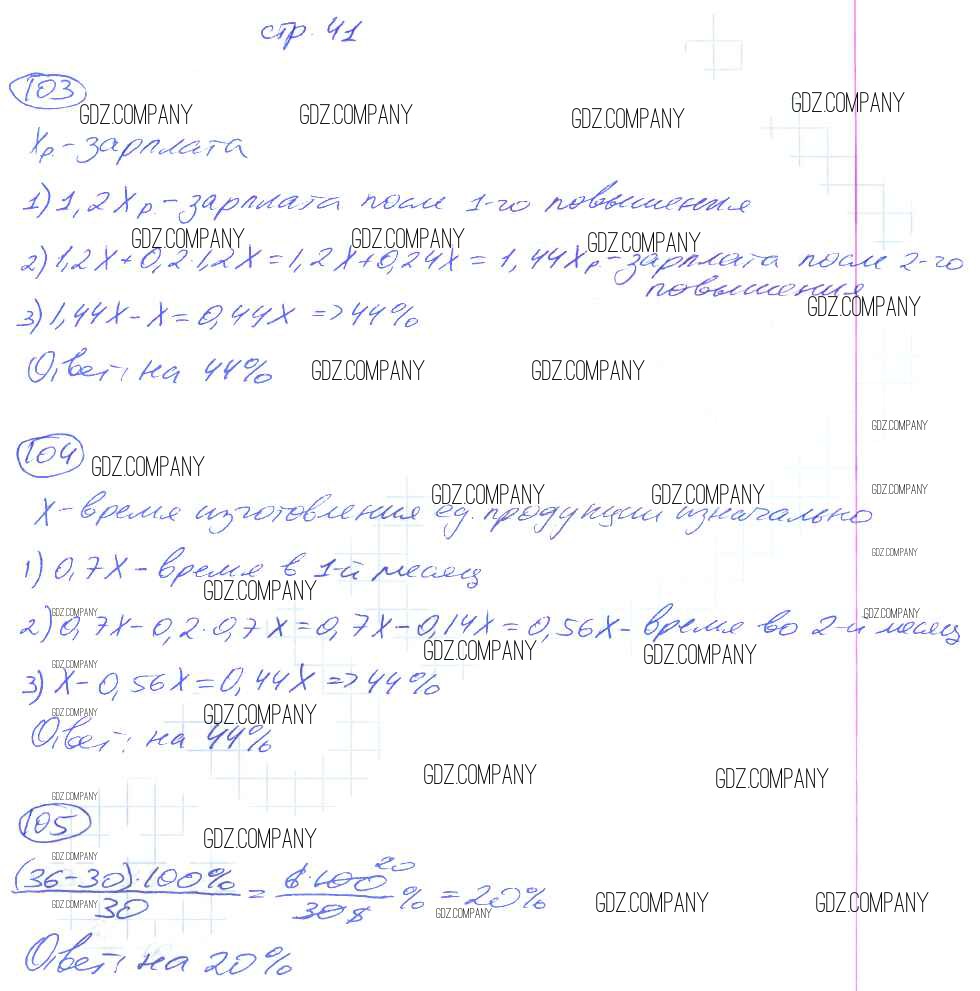 стр. 41
103
GDZ.COMPANY GDZ.COMPANY GDZ.COMPANY GDZ.COMPANY
Xр. - зарплата
1) 1,2Xр. - зарплата после 1-го повышения
GDZ.COMPANY GDZ.COMPANY GDZ.COMPANY
2) 1,2X+0,2·1,2X=1,2X+0,24X=1,44Xр.-зарплата после 2-го
повышения
GDZ.COMPANY
3) 1,44X-X=0,44X =>44%
Ответ: на 44%
GDZ.COMPANY GDZ.COMPANY
GDZ.COMPANY
104
GDZ.COMPANY GDZ.COMPANY GDZ.COMPANY GDZ.COMPANY
X-время изготовления ед. продукции изначально
GDZ.COMPANY
1) 0,7X - время в 1-й месяц
GDZ.COMPANY
GDZ.COMPANY GDZ.COMPANY
2) 0,7X-0,2·0,7X=0,7X-0,14X=0,56X- время во 2-й месяц
GDZ.COMPANY GDZ.COMPANY GDZ.COMPANY
3) X-0,56X=0,44X=>44%
GDZ.COMPANY GDZ.COMPANY
Ответ: на 44%
GDZ.COMPANY GDZ.COMPANY
GDZ.COMPANY
105
GDZ.COMPANY
GDZ.COMPANY
(36-30)·100% / 30 = 6·100 20 / 30 5 % = 20%
GDZ.COMPANY GDZ.COMPANY GDZ.COMPANY GDZ.COMPANY
Ответ: на 20%